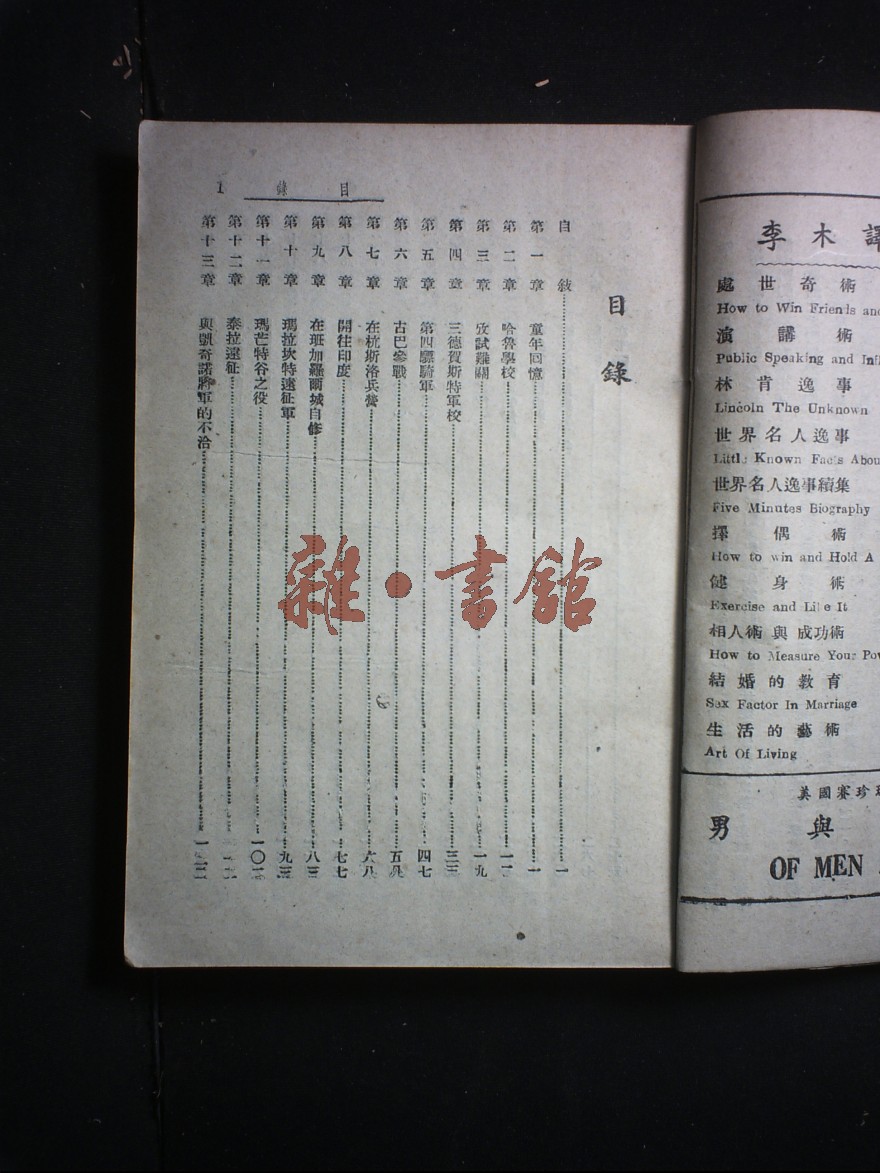 目錄 1
目錄
自敍 一
第一章 童年回憶 一
第二章 哈魯學校
第三章 攷試難關 一九
第四章 三德賀斯特軍校
第五章 第四驃騎軍 四七
第六章 古巴參戰
第七章 在杭斯洛兵營 六八
第八章 開往印度 七七
第九章 在班加羅爾城自修 八三
第十章 瑪拉坎特遠征軍 九三
第十一章 瑪芒特谷之役
第十二章 泰拉遠征
第十三章 與凱奇諾將軍的不洽
雜·書館
李木譯
處世奇術
How to Win Friends and
演講術
Public Speaking and Infl
林肯逸事
Lincoln The Unknown
世界名人逸事
Little Known Facts Abou
世界名人逸事續集
Five Minutes Biography
擇偶術
How to win and Hold A
健身術
Exercise and Like It
相人術與成功術
How to Measure Your Pow
結婚的教育
Sex Factor In Marriage
生活的藝術
Art Of Living
美國賽珍
男與
OF MEN